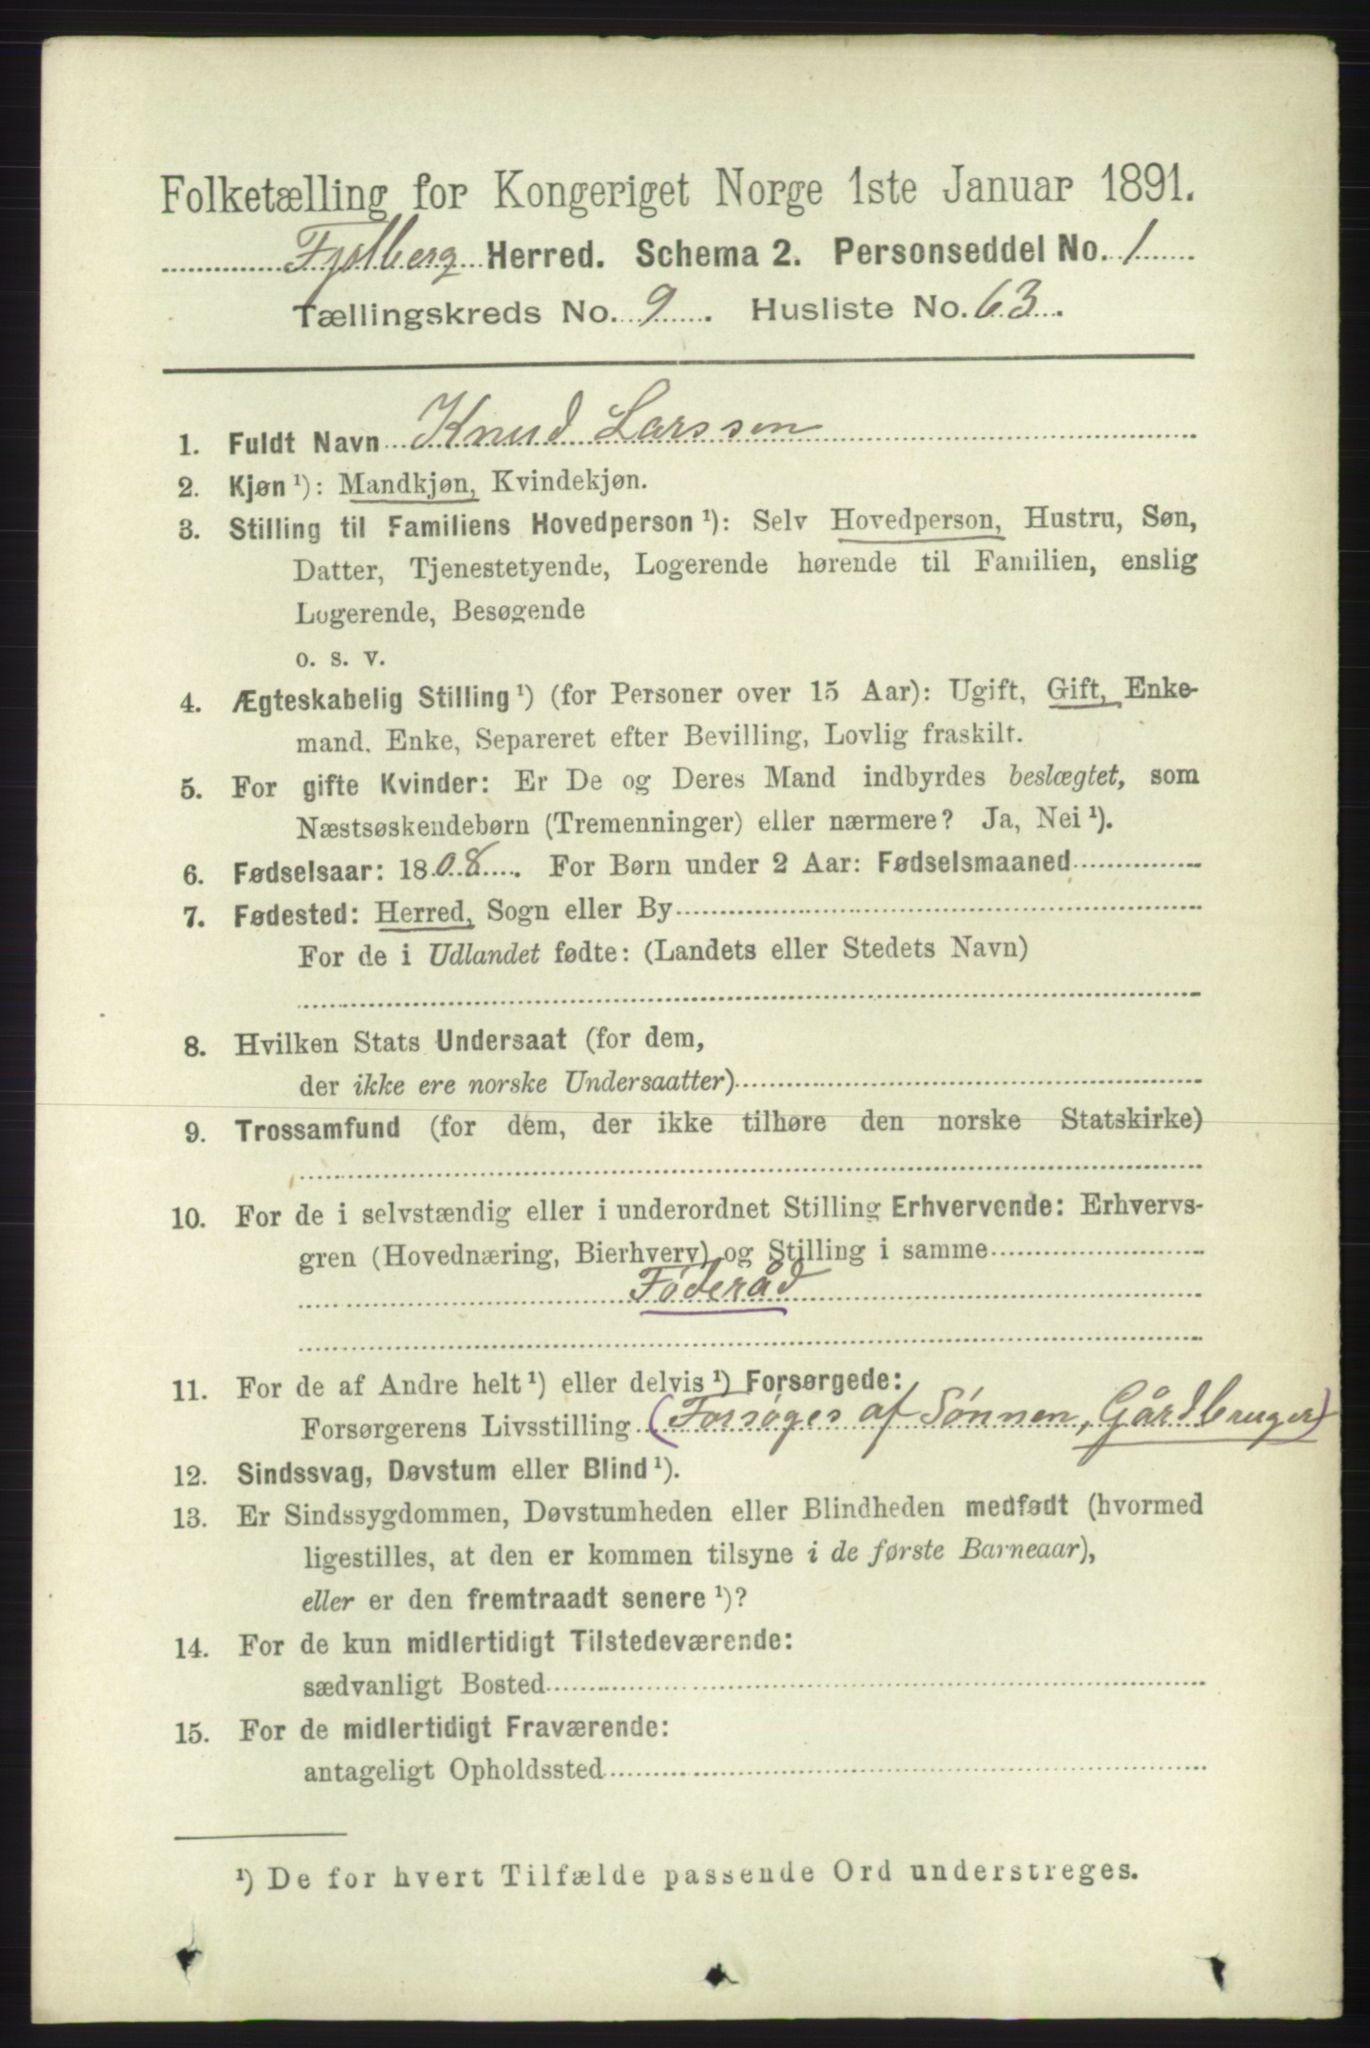 Folketælling for Kongeriget Norge 1ste Januar 1891.
Fjelberg Herred. Schema 2. Personseddel No. 1
Tællingskreds No. 9. Husliste No. 63.
1. Fuldt Navn Knud Larssen
2. Kjøn ¹): Mandkjøn, Kvindekjøn.
3. Stilling til Familiens Hovedperson ¹): Selv Hovedperson, Hustru, Søn,
Datter, Tjenestetyende, Logerende hørende til Familien, enslig
Logerende, Besøgende
o. s. v.
4. Ægteskabelig Stilling ¹) (for Personer over 15 Aar): Ugift, Gift, Enke-
mand. Enke, Separeret efter Bevilling, Lovlig fraskilt.
5. For gifte Kvinder: Er De og Deres Mand indbyrdes beslægtet, som
Næstsøskendebørn (Tremenninger) eller nærmere? Ja, Nei ¹).
6. Fødselsaar: 1808. For Børn under 2 Aar: Fødselsmaaned
7. Fødested: Herred, Sogn eller By
For de i Udlandet fødte: (Landets eller Stedets Navn)
8. Hvilken Stats Undersaat (for dem,
der ikke ere norske Undersaatter)
9. Trossamfund (for dem, der ikke tilhøre den norske Statskirke)
10. For de i selvstændig eller i underordnet Stilling Erhvervende: Erhvervs-
gren (Hovednæring, Bierhverv) og Stilling i samme
Føderåd
11. For de af Andre helt ¹) eller delvis ¹) Forsørgede:
Forsørgerens Livsstilling (Forsøges af Sønnen, Gårdbruger)
12. Sindssvag, Døvstum eller Blind ¹).
13. Er Sindssygdommen, Døvstumheden eller Blindheden medfødt (hvormed
ligestilles, at den er kommen tilsyne i de første Barneaar),
eller er den fremtraadt senere ¹)?
14. For de kun midlertidigt Tilstedeværende:
sædvanligt Bosted
15. For de midlertidigt Fraværende:
antageligt Opholdssted
¹) De for hvert Tilfælde passende Ord understreges.